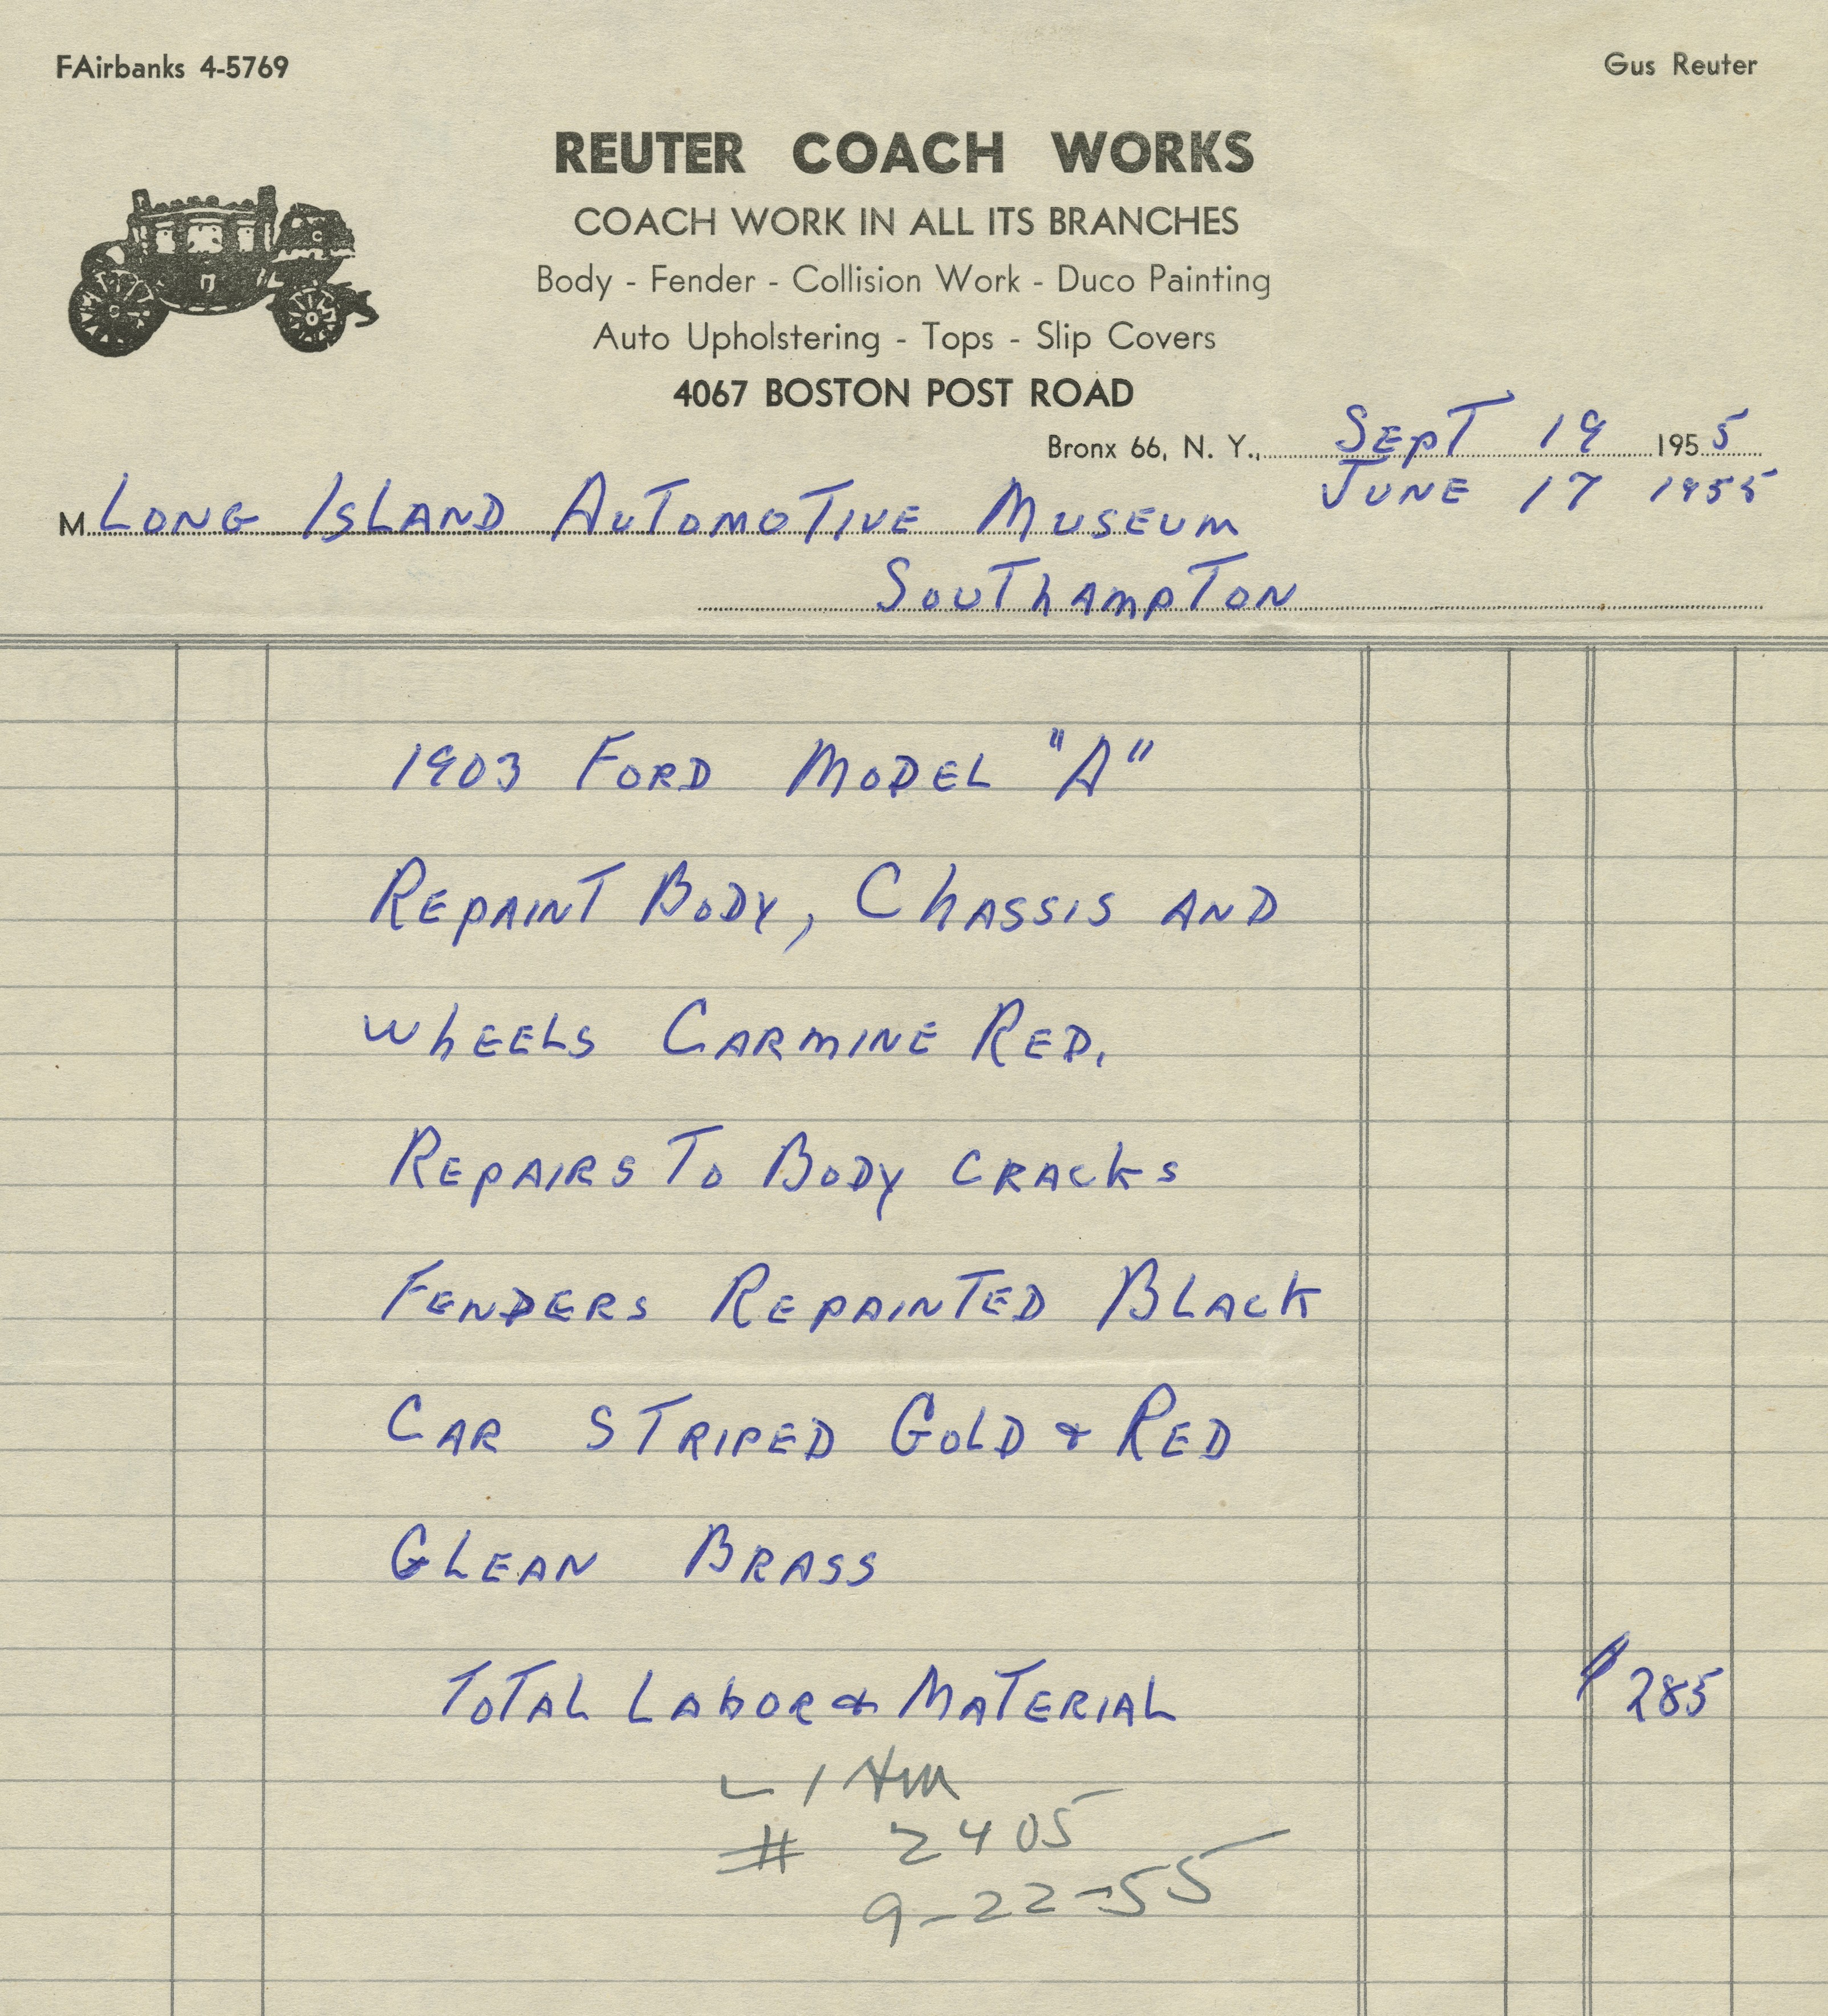 FAirbanks 4-5769
Gus Reuter
REUTER COACH WORKS
COACH WORK IN ALL ITS BRANCHES
Body - Fender - Collision Work - Duco Painting
Auto Upholstering - Tops - Slip Covers
4067 BOSTON POST ROAD
Bronx 66, N. Y., SEPT 19 1955
JUNE 17 1955
M. LONG ISLAND AUTOMOTIVE MUSEUM
SOUTHAMPTON
1903 FORD MODEL "A"
REPAINT BODY, CHASSIS AND
WHEELS CARMINE RED.
REPAIRS TO BODY CRACKS
FENDERS REPAINTED BLACK
CAR STRIPED GOLD & RED
CLEAN BRASS
TOTAL LABOR & MATERIAL $285
# 2405
9-22-55